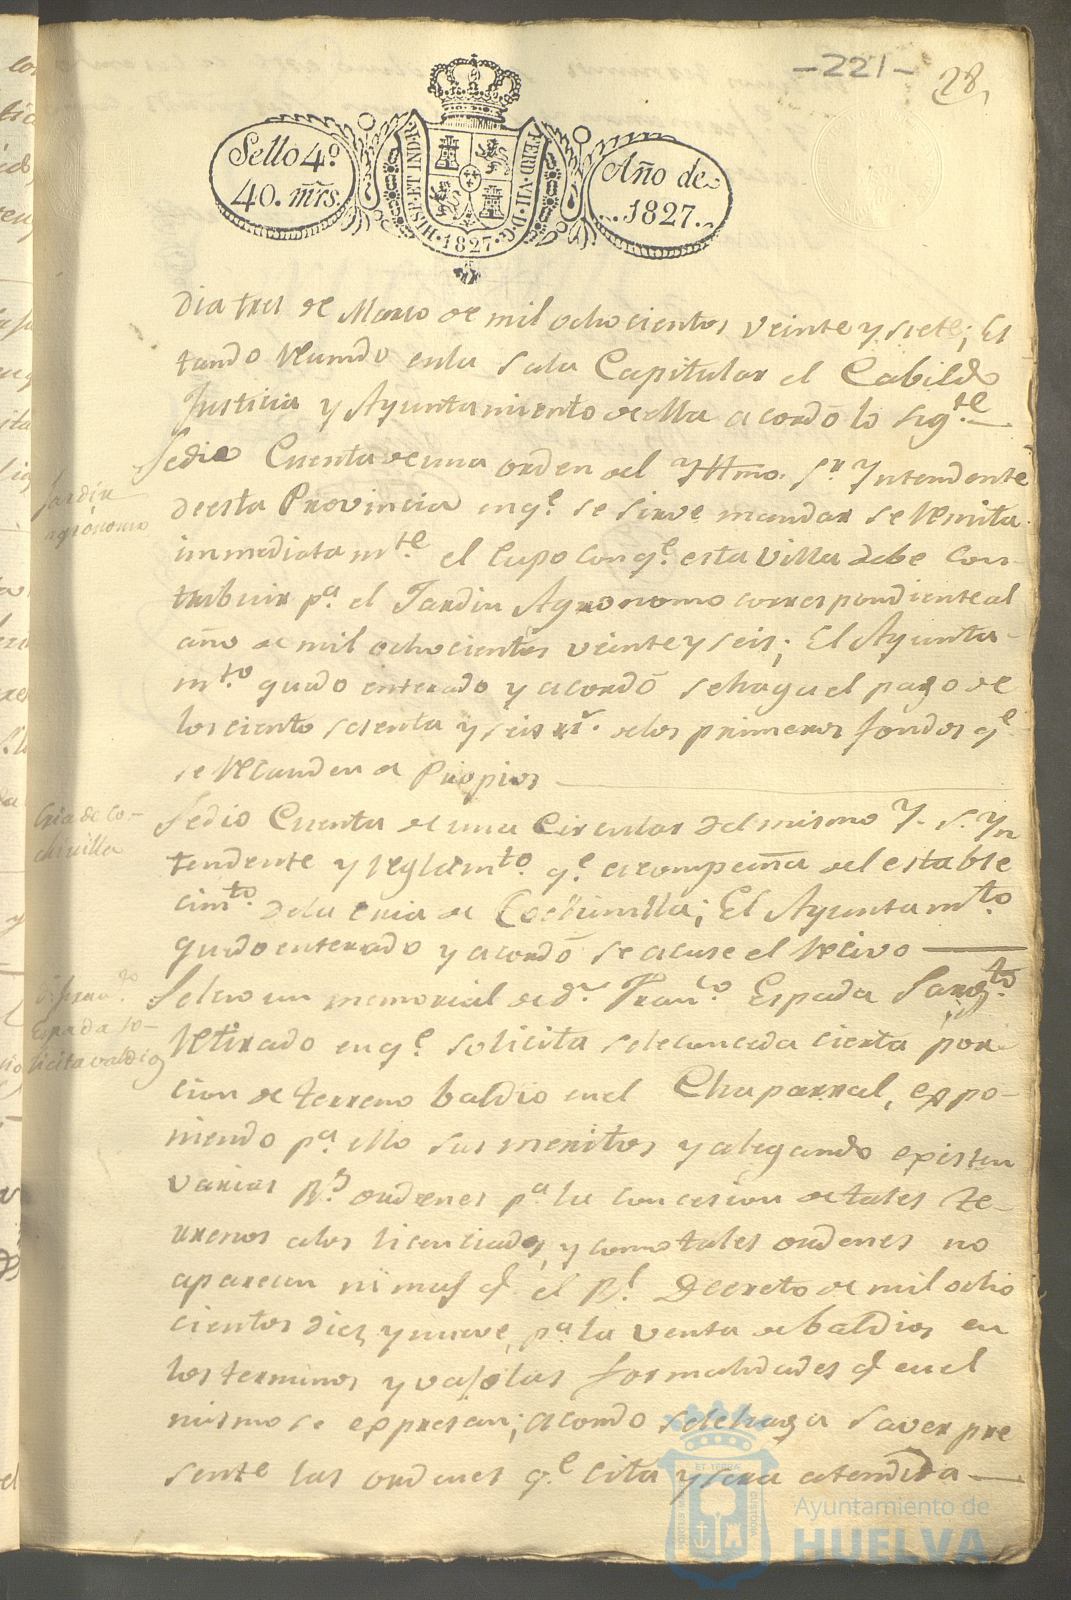 -221-
28,
Sello 4º
40. mrs.
HISP. ET IND. R.
FERD. VII. D. G.
·1827·
Año de
1827.
Dia tres de Marzo de mil ochocientos veinte y siete; Es
tando reunido enla Sala Capitular el Cabildo
Justicia y Ayuntamiento de ella acordó lo sigte
Jardin
agrónomo
Sedio Cuenta de una orden del Yltmo. Sr. Yntendente
deesta Provincia en qe. se sirve mandar se remita
immediatamte. el cupo con qe. esta villa debe Con-
tribuir pa. el Jardin Agronomo correspondiente al
año de mil ochocientos veinte y seis; El Ayunta-
mto. quedo enterado y acordó sehaga el pago de
los ciento sesenta y seis rs. delos primeros fondos qe
se recauden de Propios
Cria de co-
chinilla
Sedio Cuenta de una Circular del mismo Y. S. Yn
tendente y reglamto. qe. acompaña del estable
cimto. dela cria de Cochinilla; El Ayuntamto.
quedo enterado y acordó se acuse el recivo
D. Franco.
Espada so-
licita valdios
Seleio un memorial de dn. Franco. Espada Sargto.
retirado en qe. solicita seleconceda cierta por
cion de terreno baldio enel Chaparral, expo-
niendo pa. ello sus meritos y alegando existen
varias Rs. ordenes pa. la concesion de tales te-
rrenos alos licenciados, y como tales ordenes no
aparecen ni mas q. el Rl. Decreto de mil ocho
cientos diez y nueve, pa. la venta de baldios en
los terminos y vajo las formalidades q. en el
mismo se expresan; acordo selehaga saver pre
sente las ordenes qe. cita y sera atendida
Ayuntamiento de
HUELVA